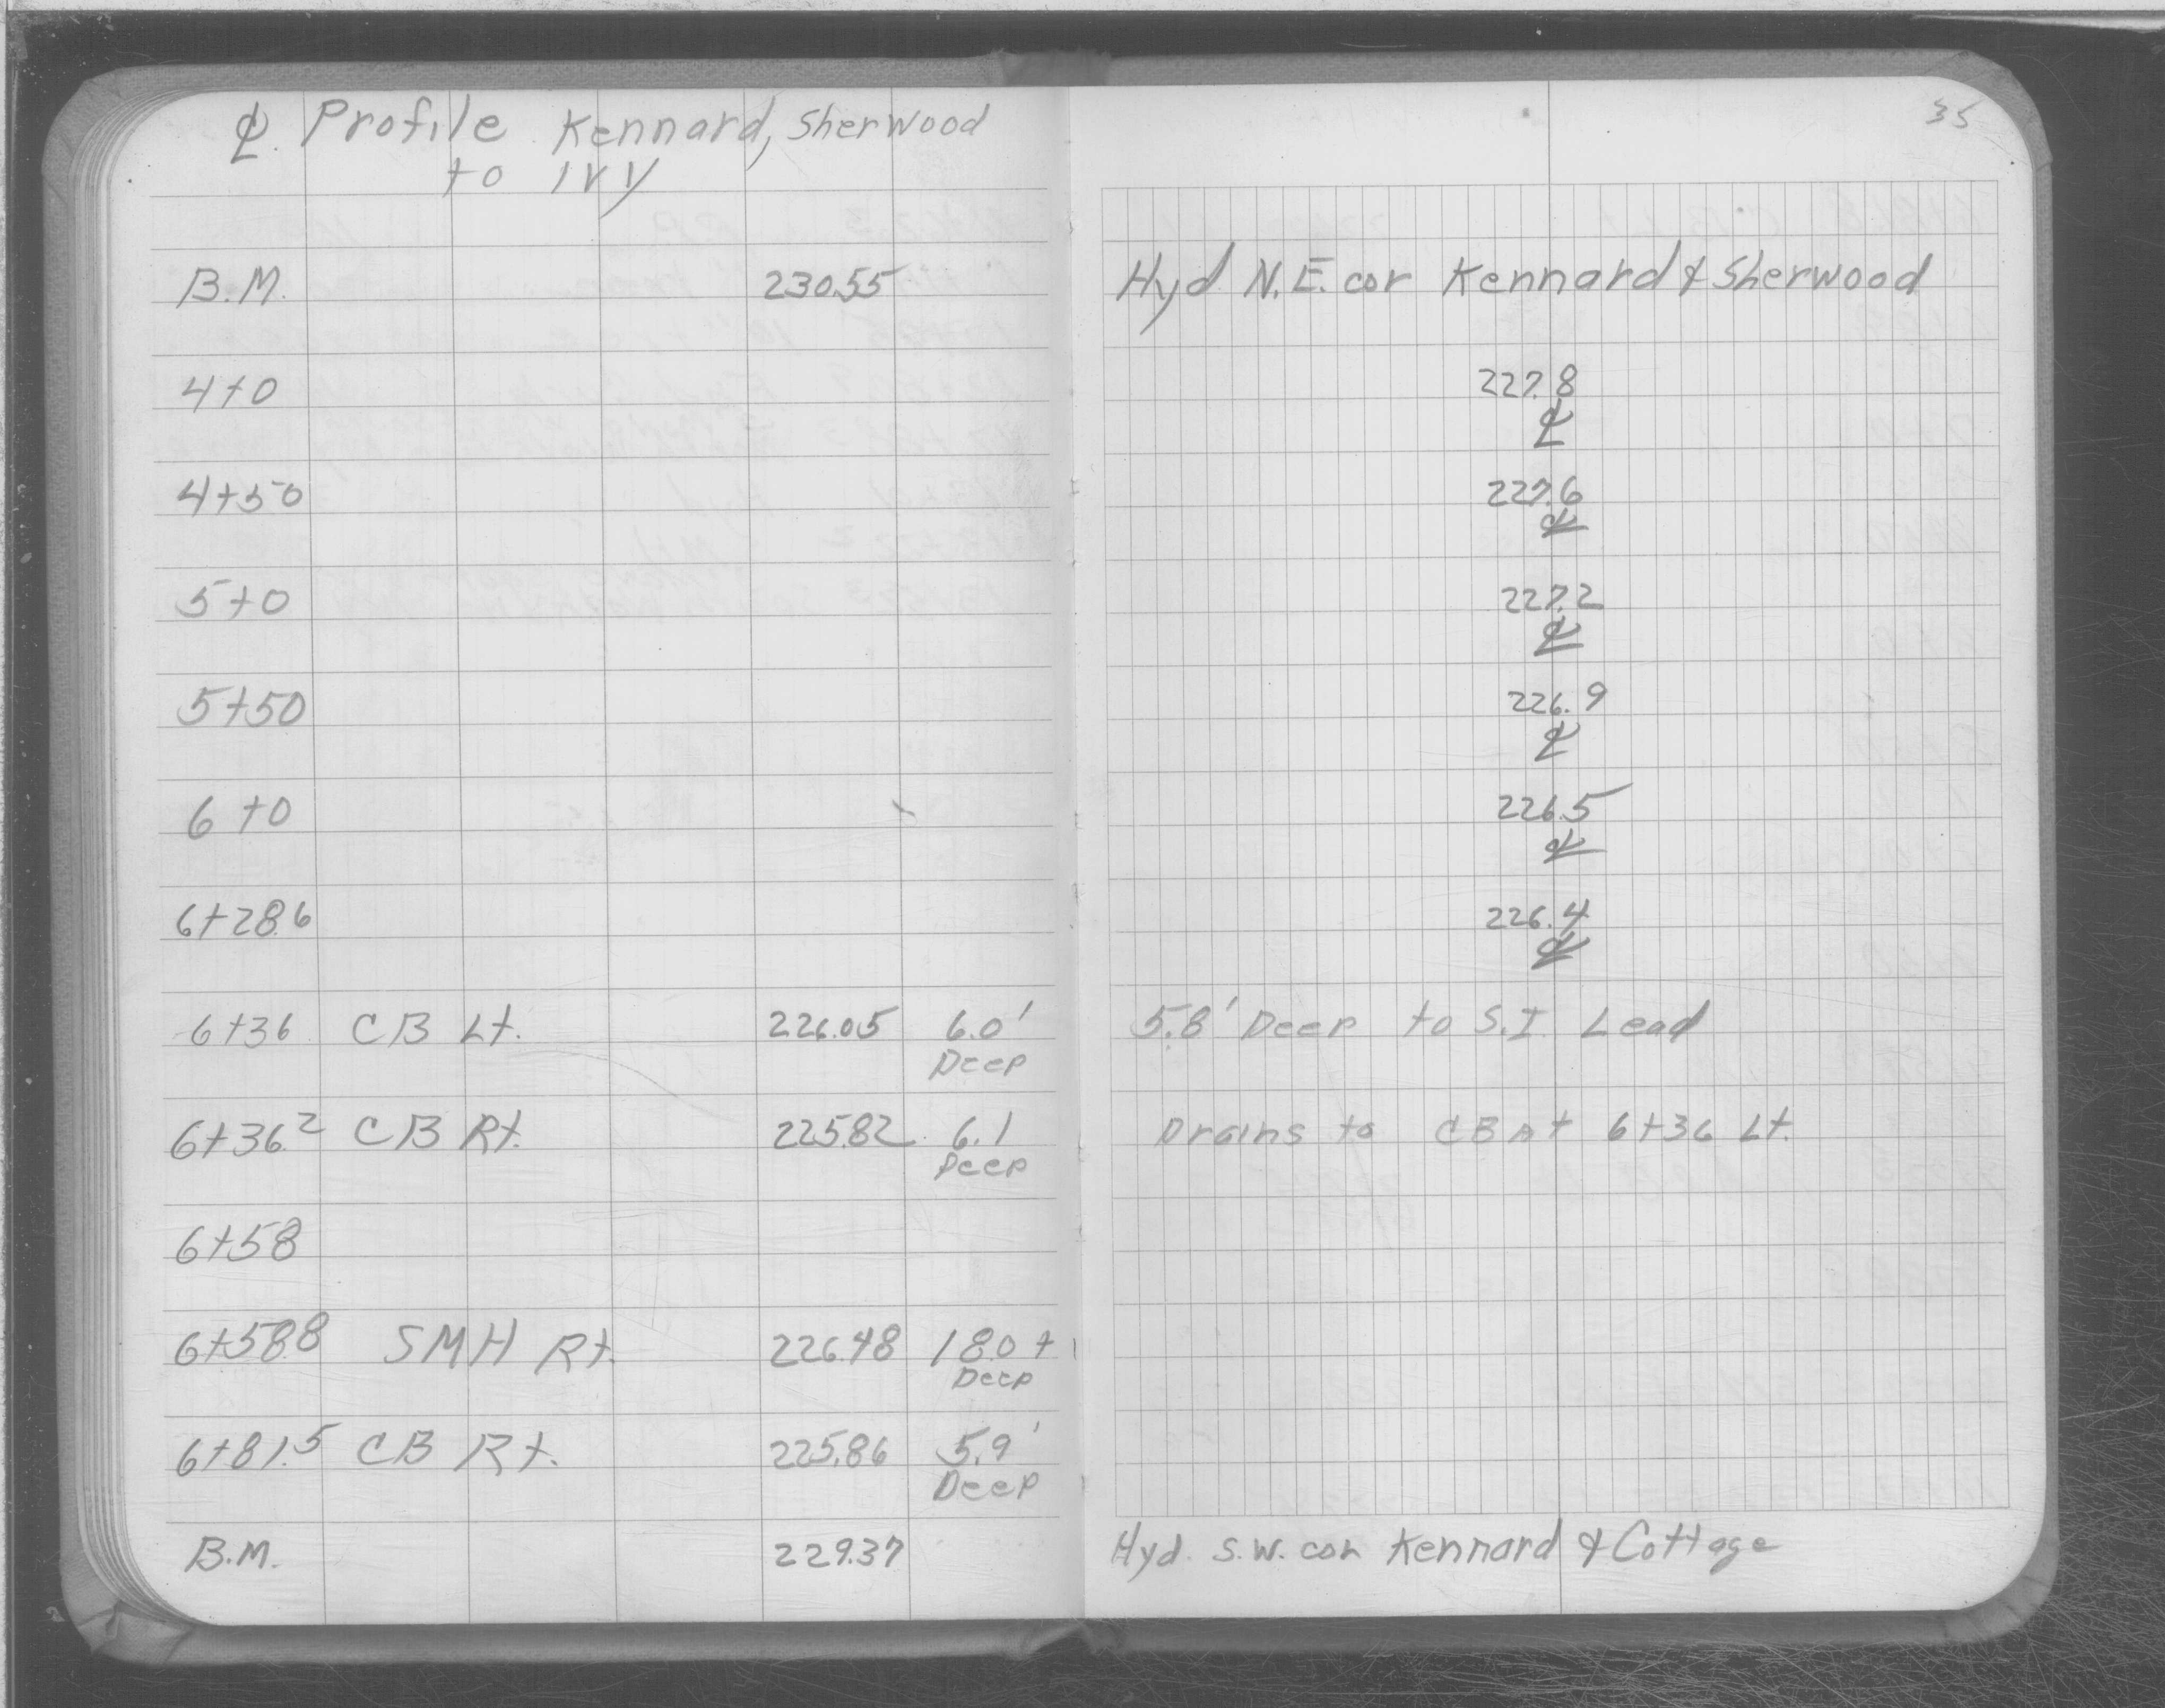 ℄ Profile Kennard, Sherwood
to IVY
35
B.M. 230.55 Hyd N.E. cor Kennard & Sherwood
4+0 227.8
℄
4+50 227.6
℄
5+0 227.2
℄
5+50 226.9
℄
6+0 226.5
℄
6+28.6 226.4
℄
6+36 CB Lt. 226.05 6.0' 5.8' Deep to S.I. Lead
Deep
6+36.2 CB Rt. 225.82 6.1 Drains to CB At 6+36 Lt.
Deep
6+58
6+58.8 SMH Rt. 226.48 18.0+
Deep
6+81.5 CB Rt. 225.86 5.9'
Deep
B.M. 229.37 Hyd. S.W. cor Kennard & Cottage